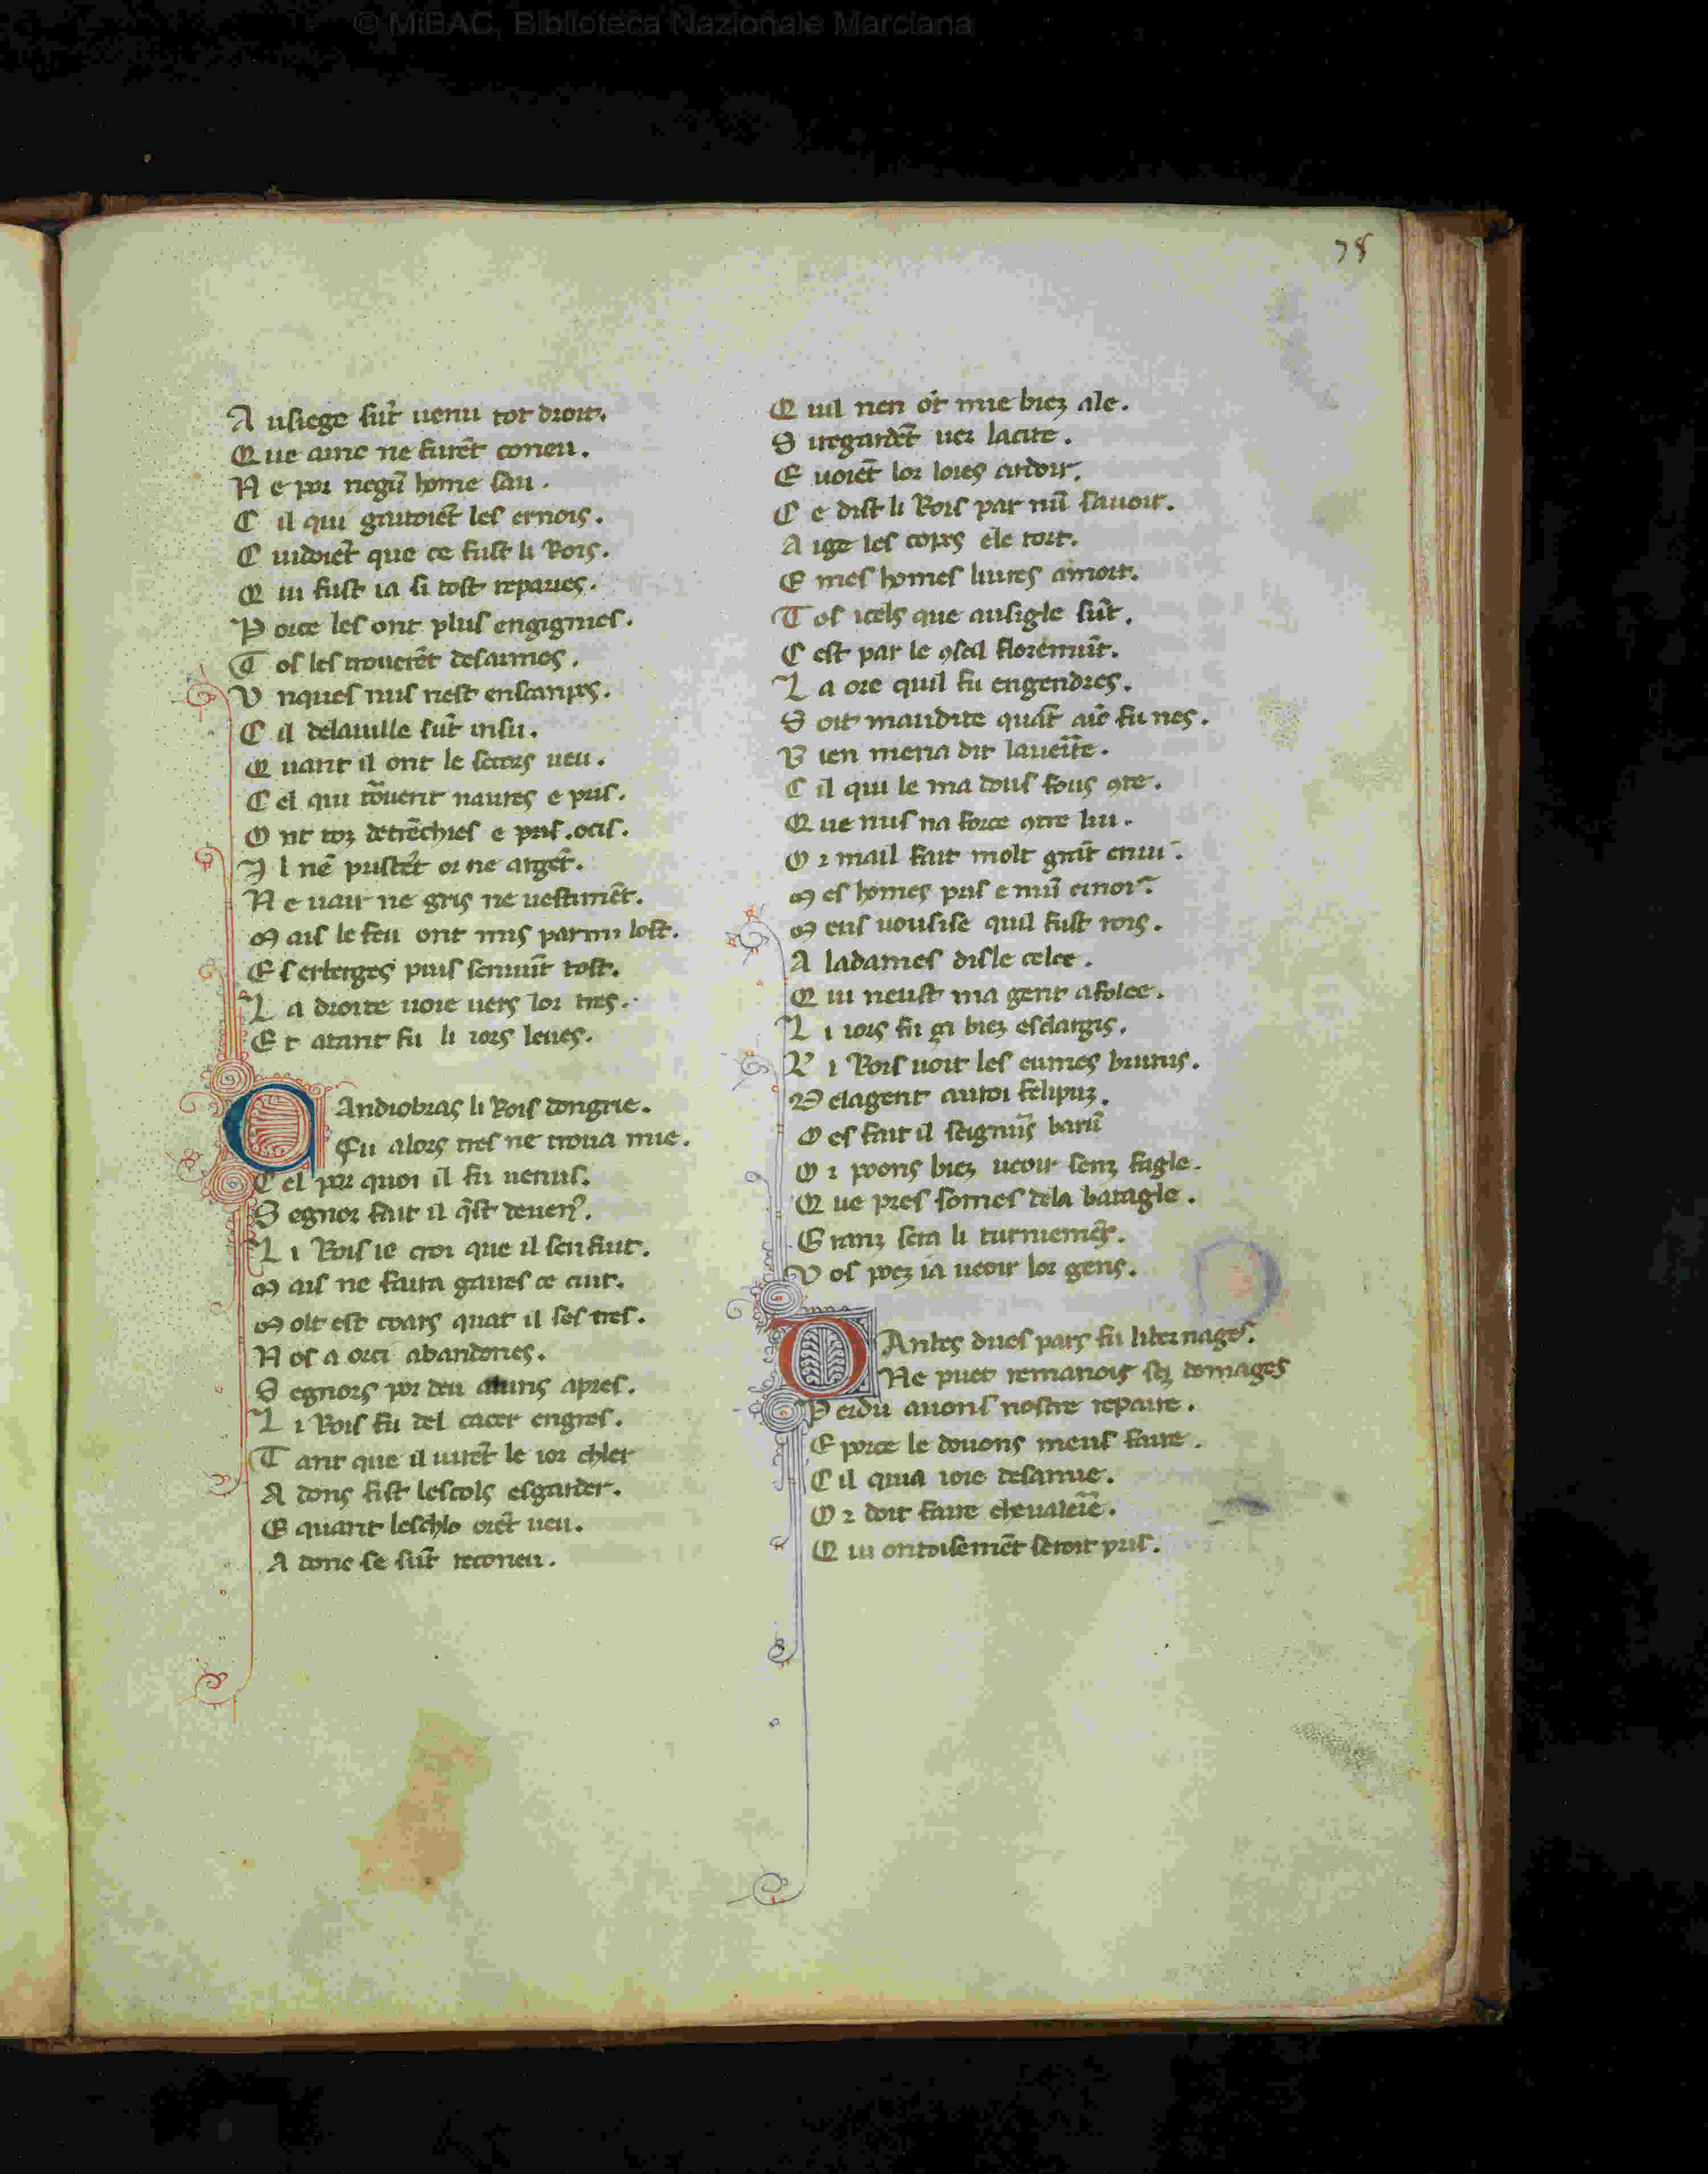 © MiBAC, Biblioteca Nazionale Marciana
78
A usiege sūt uenu tot droit.
Q ue ainc ne furēt coneu.
N e por negū home sau.
C il qui gaitoiēt les ernois.
C uidoiēt que ce fust li Rois.
Q ui fust ia si tost repaires.
P orce les ont plus engignies.
T os les trouerēt desarmes.
V nques nus nest enscanpes.
C il delauille sūt insu.
Q uant il ont le secors ueu.
C el qui tōuent naures e pris.
O nt toz detrēchies e pris .ocis.
I l nē pristrēt or ne argēt.
N e uair ne gris ne uestimēt.
M ais le feu ont mis parmi lost.
E s erberges puis senuūt tost.
L a droite uoie uers lor tres.
E t atant fu li iors leues.
C Andiobras li Rois dongrie.
Fu alors tres ne troua mie.
C el por quoi il fu uenus.
S egnor fait il q̄st deuenꝰ.
L i Rois ie croi que il sen fuit.
M ais ne faira gaires ce cuit.
M olt est coars quāt il ses tres.
N os a orci abandones.
S egnors por deu aluns apres.
L i Rois fu del cacer engres.
T ant que il uirēt le ior chler
A dons fist lescols esgarder.
E quant leschlo orēt ueu.
A donc se sūt reconeu.
Q uil nen ōt mie biez ale.
S iregardēt uer lacite.
E uoiēt lor loies ardoir.
C e dist li Rois par nū sauoir.
A ige les corps ēle toit.
E mes homes liures amort.
T os icels que ausigle sūt.
C est par le ꝯseil floremūt.
L a ore quil fu engendres.
S oit maudite quāt aīc fu nes.
B ien mena dit lauerīte.
C il qui le ma tous fous ꝯte.
Q ue nus na force ꝯtre lui.
O r mail fait molt grāt enui.
M es homes pris e mū enor.
M eus uousise quil fust rois.
A ladames disle celee.
Q ui neust ma gent afolee.
L i iors fu ia biez esclargis.
L i Rois uoit les eumes brunis.
D elagent auroi felipuz.
O es fait il seignūs barū
O r poons biez ueoir senz fagle.
Q ue pres somes dela batagle.
G ranz sera li turniemēz.
V os poez ia ueoir lor gens.
D Anbes dues pars fu liber nages.
Ne puet remanoir sēz domages
P erdu auons nostre repaire.
E porce le douons meus faire.
C il quia ioie desamie.
O r doit faire cheualerīe.
Q ui ontoisemēt seroit pris.